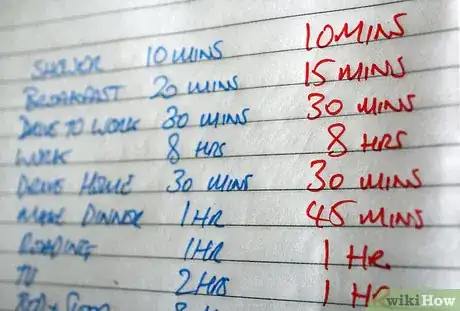 SHOWER 10 MINS 10 MINS
BREAKFAST 20 MINS 15 MINS
DRIVE TO WORK 30 MINS 30 MINS
WORK 8 HRS 8 HRS
DRIVE HOME 30 MINS 30 MINS
MAKE DINNER 1 HR 45 MINS
READING 1 HR 1 HR
TV 2 HRS 1 HR
wikiHow